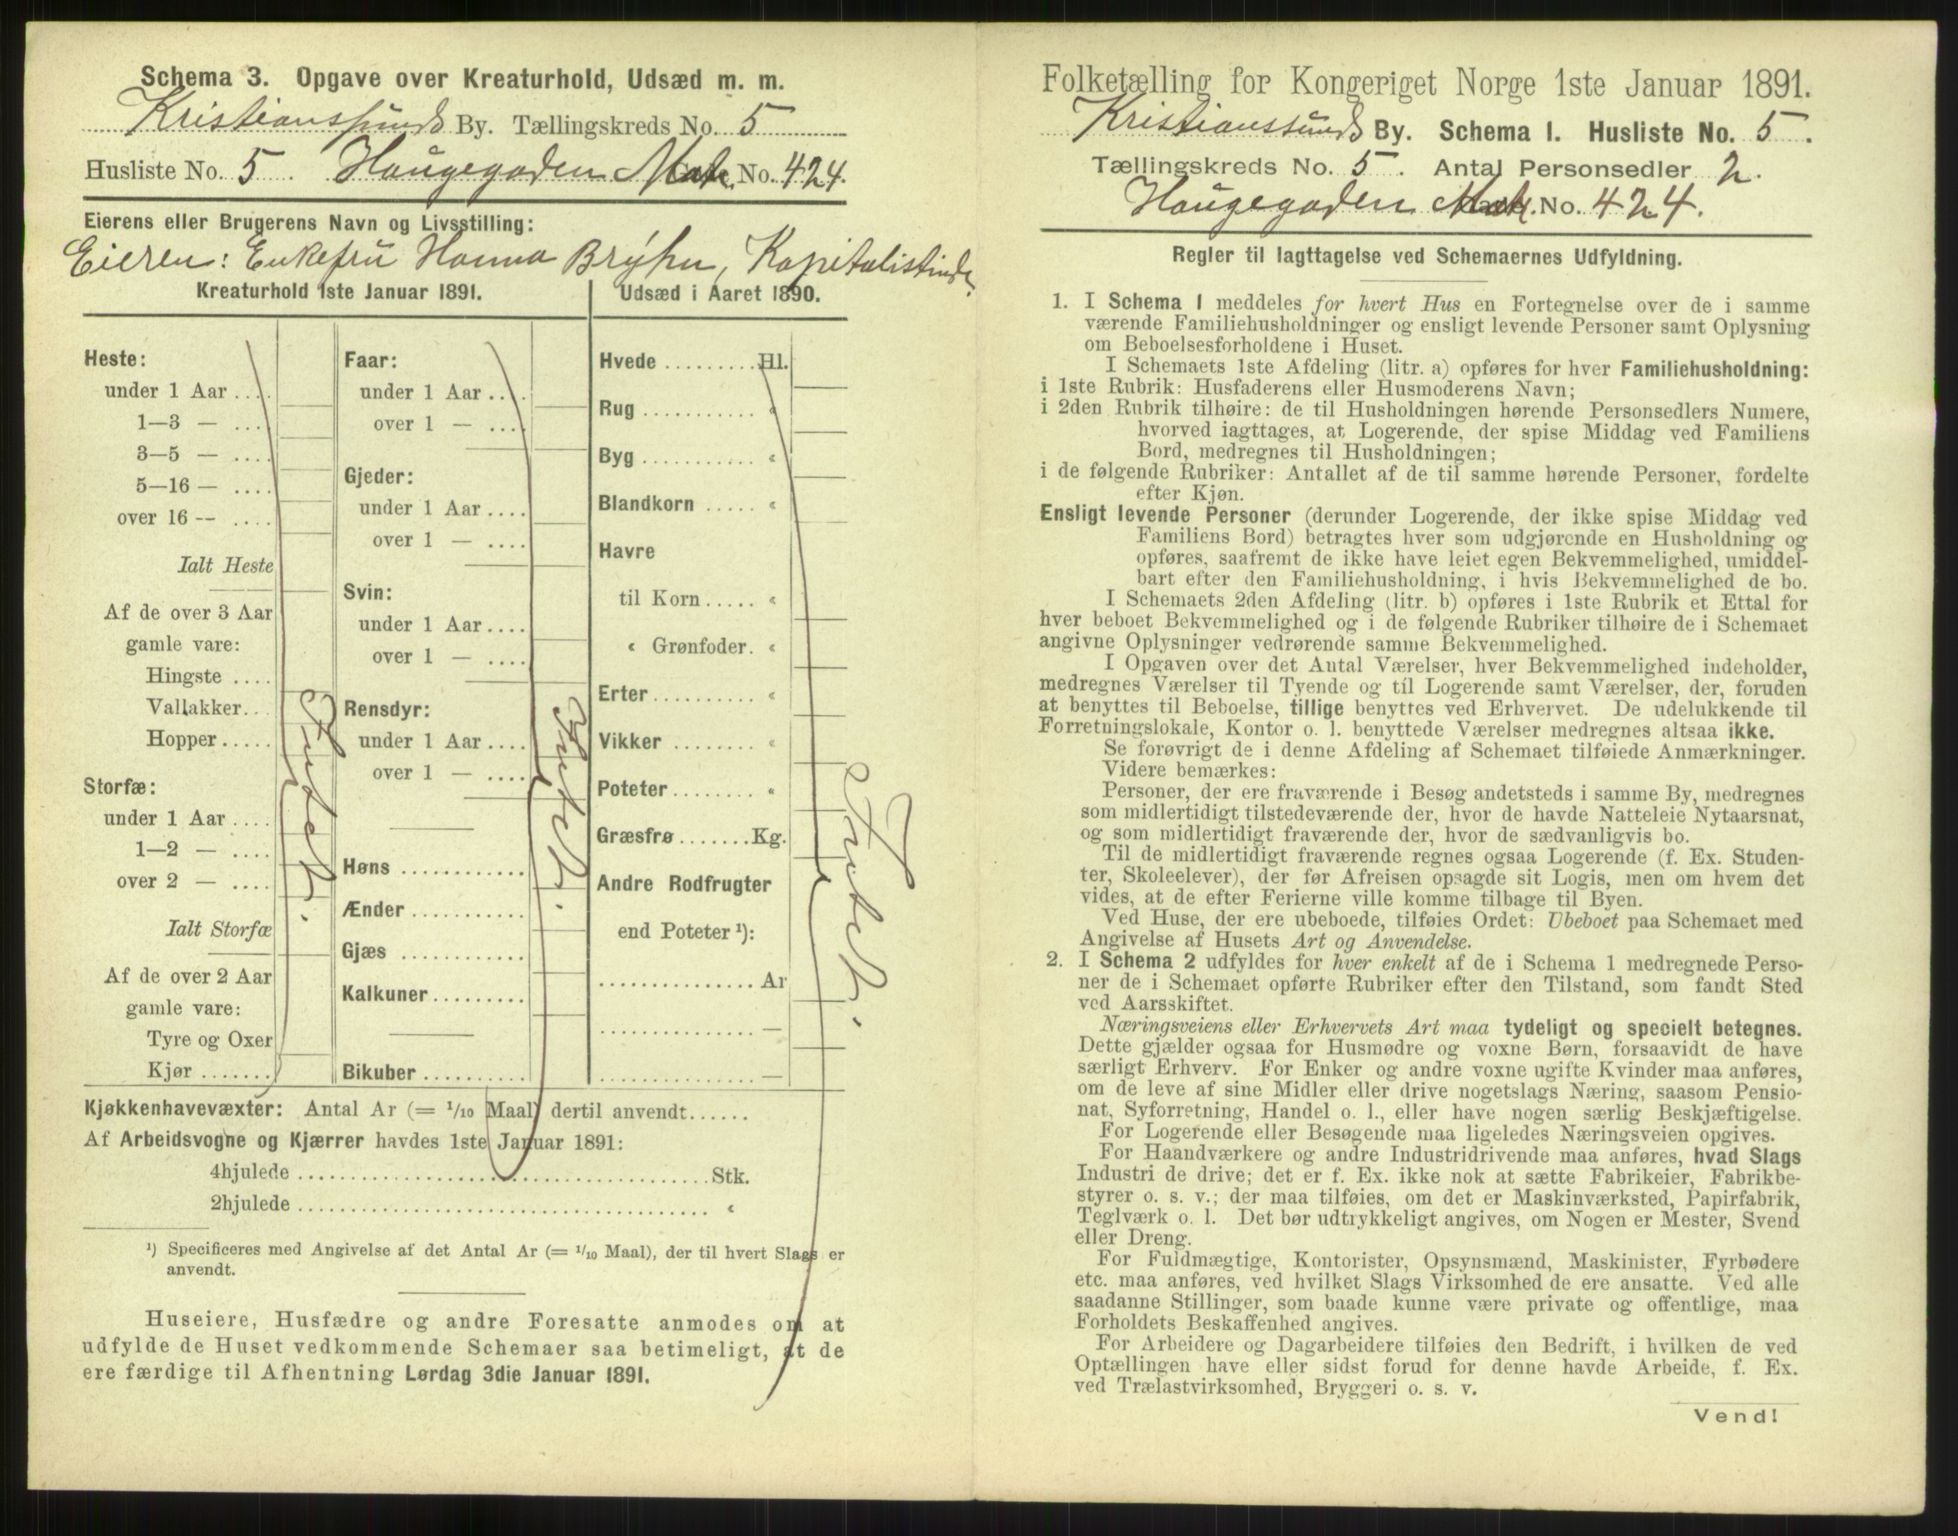 Schema 3. Opgave over Kreaturhold, Udsæd m. m.
Kristianssunds By. Tællingskreds No. 5
Husliste No. 5. Haugegaden Matr. No. 424.
Eierens eller Brugerens Navn og Livsstilling:
Eieren: Enkefru Hanna Brÿhn, Kapitalistinde.
Kreaturhold 1ste Januar 1891.
Heste:
under 1 Aar ....
1—3 — ....
3—5 — ....
5—16 — ....
over 16 -- ....
Ialt Heste
Af de over 3 Aar
gamle vare:
Hingste ....
Vallakker...
Hopper .....
Storfæ:
under 1 Aar ....
1—2 — ....
over 2 — ....
Ialt Storfæ
Af de over 2 Aar
gamle vare:
Tyre og Oxer
Kjør .......
Intet.
Faar:
under 1 Aar ....
over 1 — ....
Gjeder:
under 1 Aar ....
over 1 — ....
Svin:
under 1 Aar ....
over 1 — ....
Rensdyr:
under 1 Aar ....
over 1 — ....
Høns ...........
Ænder ..........
Gjæs ...........
Kalkuner ........
Bikuber .........
Intet.
Udsæd i Aaret 1890.
Hvede ......... Hl.
Rug ........... «
Byg ........... «
Blandkorn ..... «
Havre
til Korn ..... «
« Grønfoder. «
Erter ......... «
Vikker ........ «
Poteter ........ «
Græsfrø ....... Kg.
Andre Rodfrugter
end Poteter ¹):
............... Ar
............... —
............... —
Intet.
Kjøkkenhavevæxter: Antal Ar (= 1/10 Maal) dertil anvendt......
Af Arbeidsvogne og Kjærrer havdes 1ste Januar 1891:
4hjulede ........................................ Stk.
2hjulede ........................................ «
¹) Specificeres med Angivelse af det Antal Ar (= 1/10 Maal), der til hvert Slags er
anvendt.
Huseiere, Husfædre og andre Foresatte anmodes om at
udfylde de Huset vedkommende Schemaer saa betimeligt, at de
ere færdige til Afhentning Lørdag 3die Januar 1891.
Folketælling for Kongeriget Norge 1ste Januar 1891.
Kristianssunds By. Schema 1. Husliste No. 5.
Tællingskreds No. 5. Antal Personsedler 2.
Haugegaden Matr. No. 424.
Regler til Iagttagelse ved Schemaernes Udfyldning.
1. I Schema 1 meddeles for hvert Hus en Fortegnelse over de i samme
værende Familiehusholdninger og ensligt levende Personer samt Oplysning
om Beboelsesforholdene i Huset.
I Schemaets 1ste Afdeling (litr. a) opføres for hver Familiehusholdning:
i 1ste Rubrik: Husfaderens eller Husmoderens Navn;
i 2den Rubrik tilhøire: de til Husholdningen hørende Personsedlers Numere,
hvorved iagttages, at Logerende, der spise Middag ved Familiens
Bord, medregnes til Husholdningen;
i de følgende Rubriker: Antallet af de til samme hørende Personer, fordelte
efter Kjøn.
Ensligt levende Personer (derunder Logerende, der ikke spise Middag ved
Familiens Bord) betragtes hver som udgjørende en Husholdning og
opføres, saafremt de ikke have leiet egen Bekvemmelighed, umiddel-
bart efter den Familiehusholdning, i hvis Bekvemmelighed de bo.
I Schemaets 2den Afdeling (litr. b) opføres i 1ste Rubrik et Ettal for
hver beboet Bekvemmelighed og i de følgende Rubriker tilhøire de i Schemaet
angivne Oplysninger vedrørende samme Bekvemmelighed.
I Opgaven over det Antal Værelser, hver Bekvemmelighed indeholder,
medregnes Værelser til Tyende og til Logerende samt Værelser, der, foruden
at benyttes til Beboelse, tillige benyttes ved Erhvervet. De udelukkende til
Forretningslokale, Kontor o. l. benyttede Værelser medregnes altsaa ikke.
Se forøvrigt de i denne Afdeling af Schemaet tilføiede Anmærkninger.
Videre bemærkes:
Personer, der ere fraværende i Besøg andetsteds i samme By, medregnes
som midlertidigt tilstedeværende der, hvor de havde Natteleie Nytaarsnat,
og som midlertidigt fraværende der, hvor de sædvanligvis bo.
Til de midlertidigt fraværende regnes ogsaa Logerende (f. Ex. Studen-
ter, Skoleelever), der før Afreisen opsagde sit Logis, men om hvem det
vides, at de efter Ferierne ville komme tilbage til Byen.
Ved Huse, der ere ubeboede, tilføies Ordet: Ubeboet paa Schemaet med
Angivelse af Husets Art og Anvendelse.
2. I Schema 2 udfyldes for hver enkelt af de i Schema 1 medregnede Perso-
ner de i Schemaet opførte Rubriker efter den Tilstand, som fandt Sted
ved Aarsskiftet.
Næringsveiens eller Erhvervets Art maa tydeligt og specielt betegnes.
Dette gjælder ogsaa for Husmødre og voxne Børn, forsaavidt de have
særligt Erhverv. For Enker og andre voxne ugifte Kvinder maa anføres,
om de leve af sine Midler eller drive nogetslags Næring, saasom Pensio-
nat, Syforretning, Handel o. l., eller have nogen særlig Beskjæftigelse.
For Logerende eller Besøgende maa ligeledes Næringsveien opgives.
For Haandværkere og andre Industridrivende maa anføres, hvad Slags
Industri de drive; det er f. Ex. ikke nok at sætte Fabrikeier, Fabrikbe-
styrer o. s. v.; der maa tilføies, om det er Maskinværksted, Papirfabrik,
Teglværk o. l. Det bør udtrykkeligt angives, om Nogen er Mester, Svend
eller Dreng.
For Fuldmægtige, Kontorister, Opsynsmænd, Maskinister, Fyrbødere
etc. maa anføres, ved hvilket Slags Virksomhed de ere ansatte. Ved alle
saadanne Stillinger, som baade kunne være private og offentlige, maa
Forholdets Beskaffenhed angives.
For Arbeidere og Dagarbeidere tilføies den Bedrift, i hvilken de ved
Optællingen have eller sidst forud for denne havde Arbeide, f. Ex.
ved Trælastvirksomhed, Bryggeri o. s. v.
Vend!